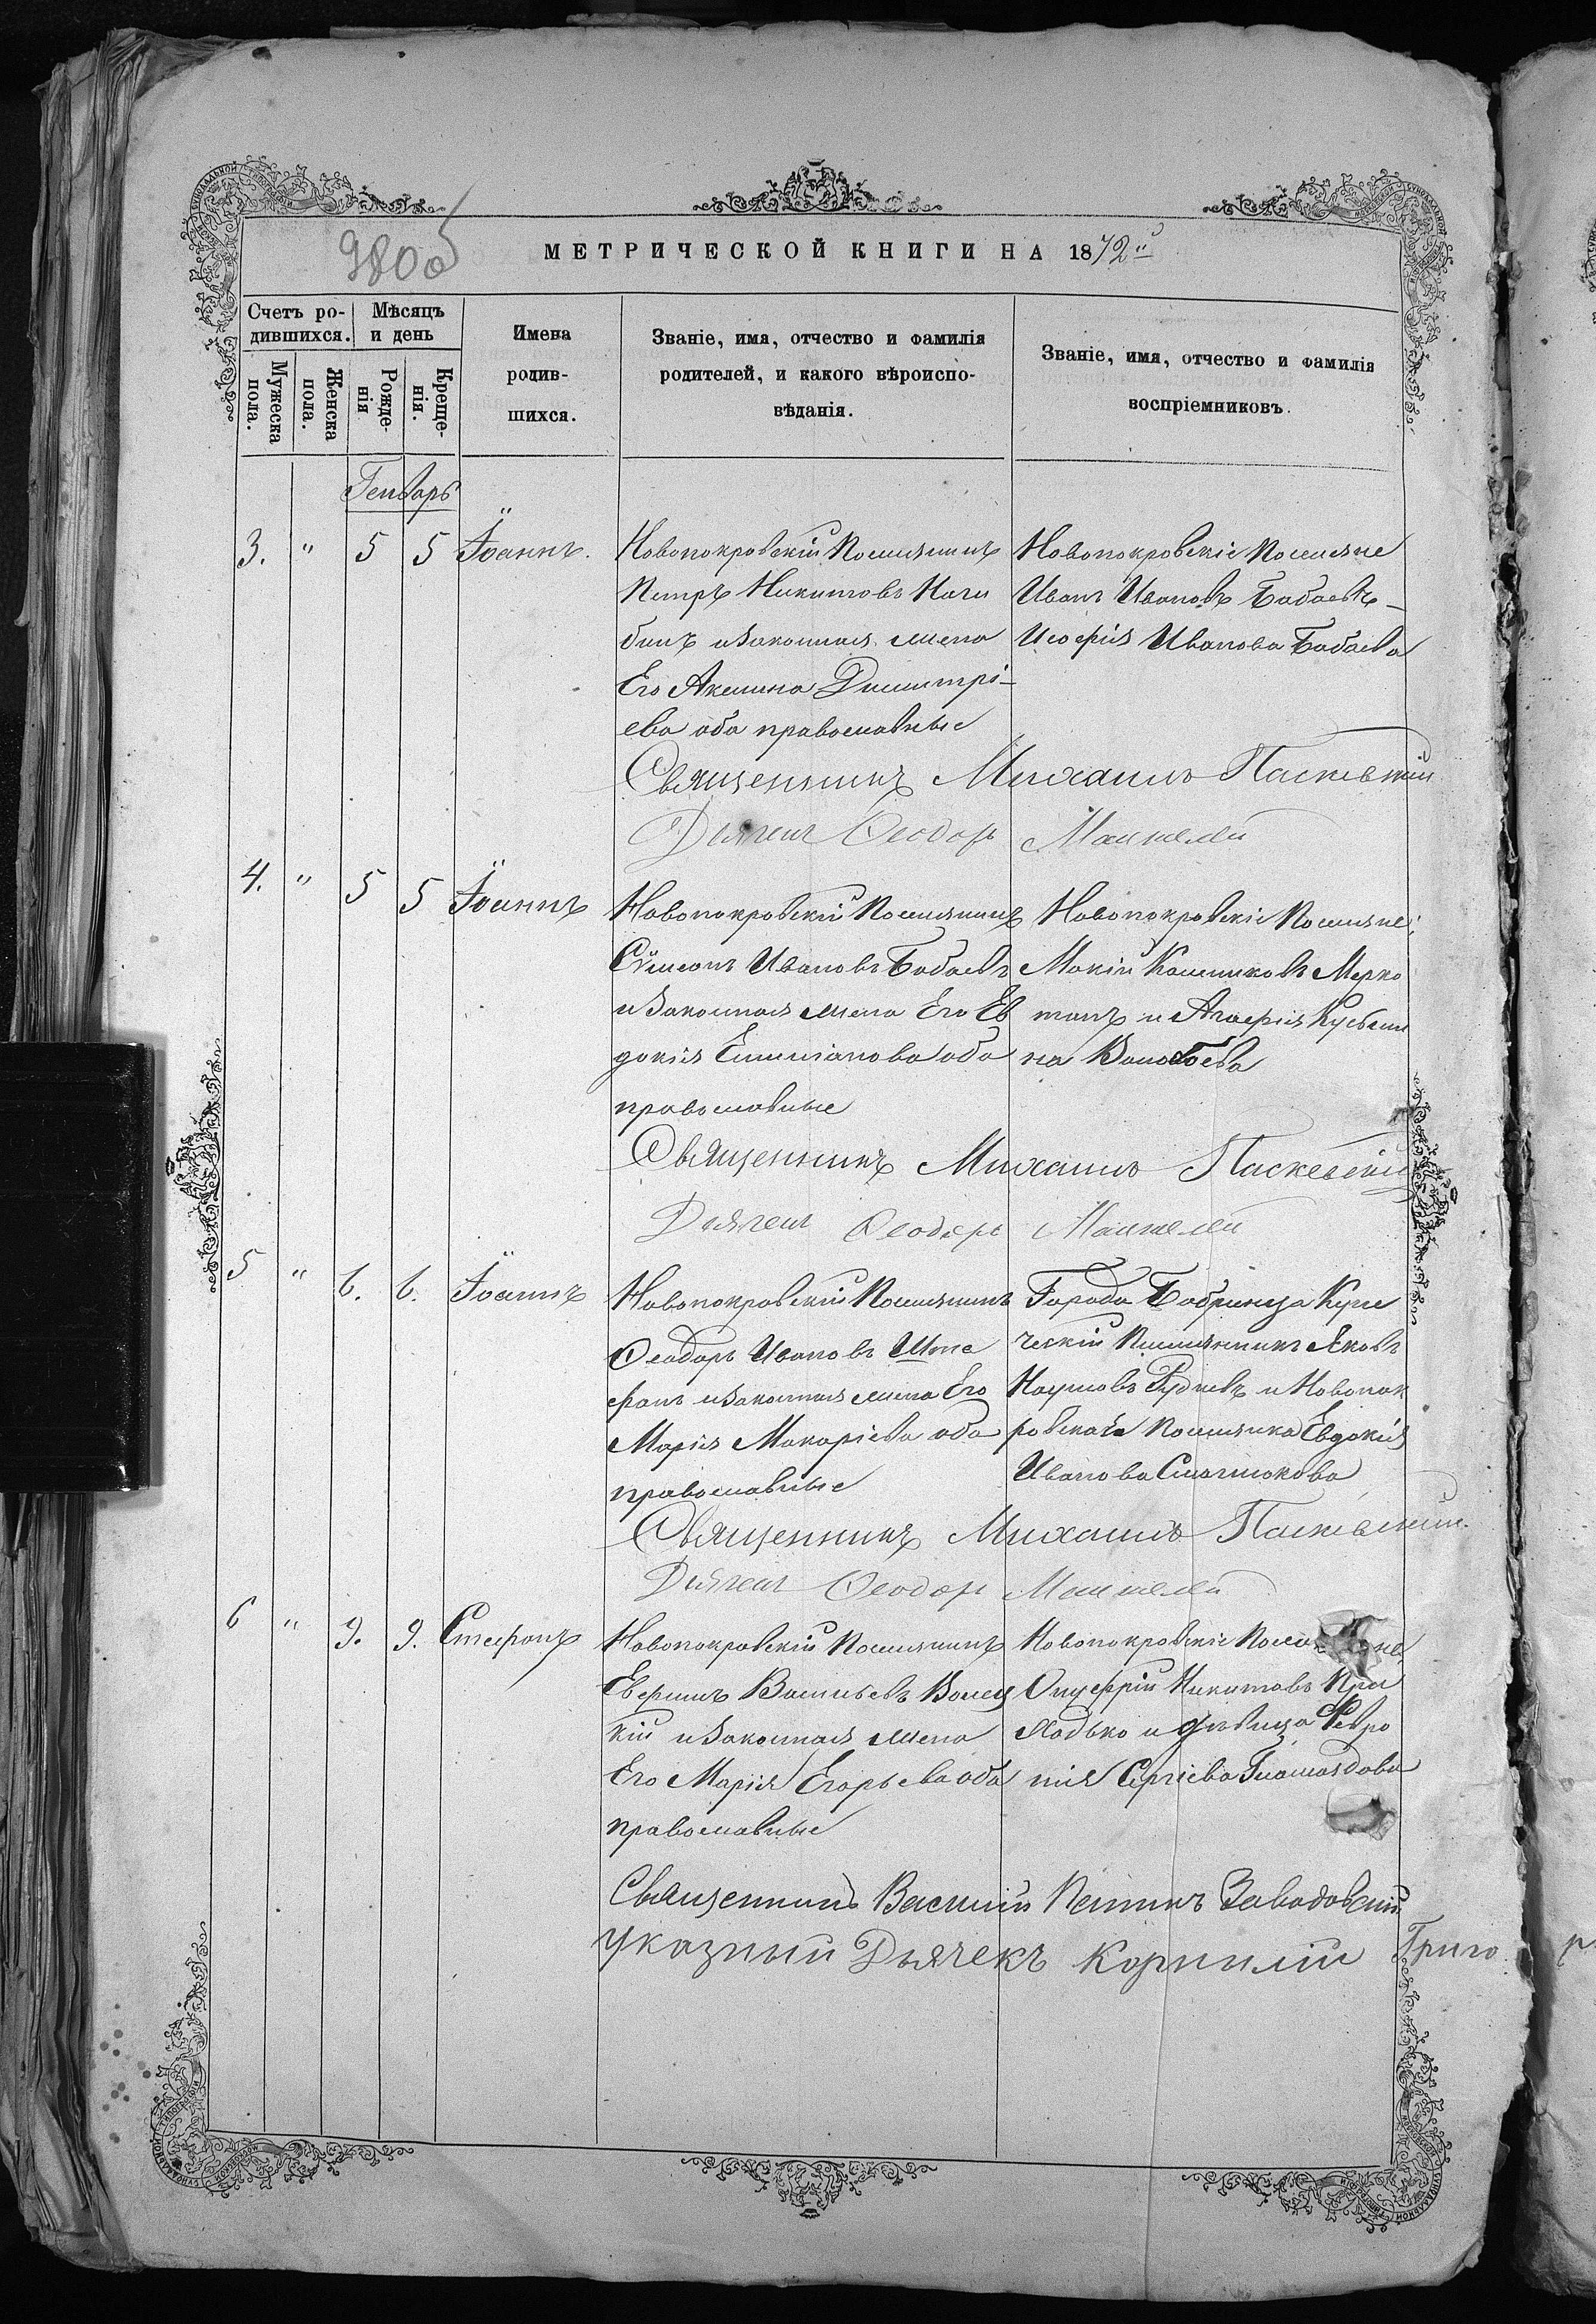 980 об
МЕТРИЧЕСКОЙ КНИГИ НА 1872й
Счетъ ро-
дившихся.
Мѣсяцъ
и день
Мужеска
пола.
Женска
пола.
Рожде-
нія
Креще-
нія.
Имена
родив-
шихся.
Званіе, имя, отчество и фамилія
родителей, и какого вѣроиспо-
вѣданія.
Званіе, имя, отчество и фамилія
воспріемниковъ.
Генварь
3. " 5 5 Іоаннъ.
Новопокровскій Поселянинъ
Петръ Никитовъ Наги
бинъ и законная жена
Его Акилина Димитрі-
ева оба православные
Новопокровскіе Поселяне
Иванъ Ивановъ Бабаевъ
И Софія Иванова Бабаева
Священникъ Михаилъ Паскевскій
Дьячекъ Ѳеодоръ
4. " 5 5 Іоаннъ
Новопокровскій Поселянинъ
Сѵмеонъ Ивановъ Бабаевъ
и законная жена Его Ев
докія Емиліанова оба
православные
Новопокровскіе Поселяне
Мокій Калениковъ Мерко
танъ и Агафія Кузьми
на
Священникъ Михаилъ Паскевскій
Дьячекъ Ѳеодоръ
5 " 6. 6. Іоаннъ
Новопокровскій Поселянинъ
Ѳеодоръ Ивановъ Ште
фанъ и законная жена Его
Марія Макаріева оба
православные
Города Бобринца Купе
ческій Племянникъ Яковъ
Наумовъ Рудневъ и Новопок
ровская Поселянка Евдокія
Иванова
Священникъ Михаилъ Паскевскій
Дьячекъ Ѳеодоръ
6 " 9. 9. Стефанъ
Новопокровскій Поселянинъ
Васильевъ
кій и законная жена
Его Марія Егорьева оба
православные
Новопокровскіе
Онуфрій Никитовъ При
ходько и дѣвица Февро
нія Сергіева
Священникъ Василій Заводовскій
Указный Дьячекъ Корнилій Григо р